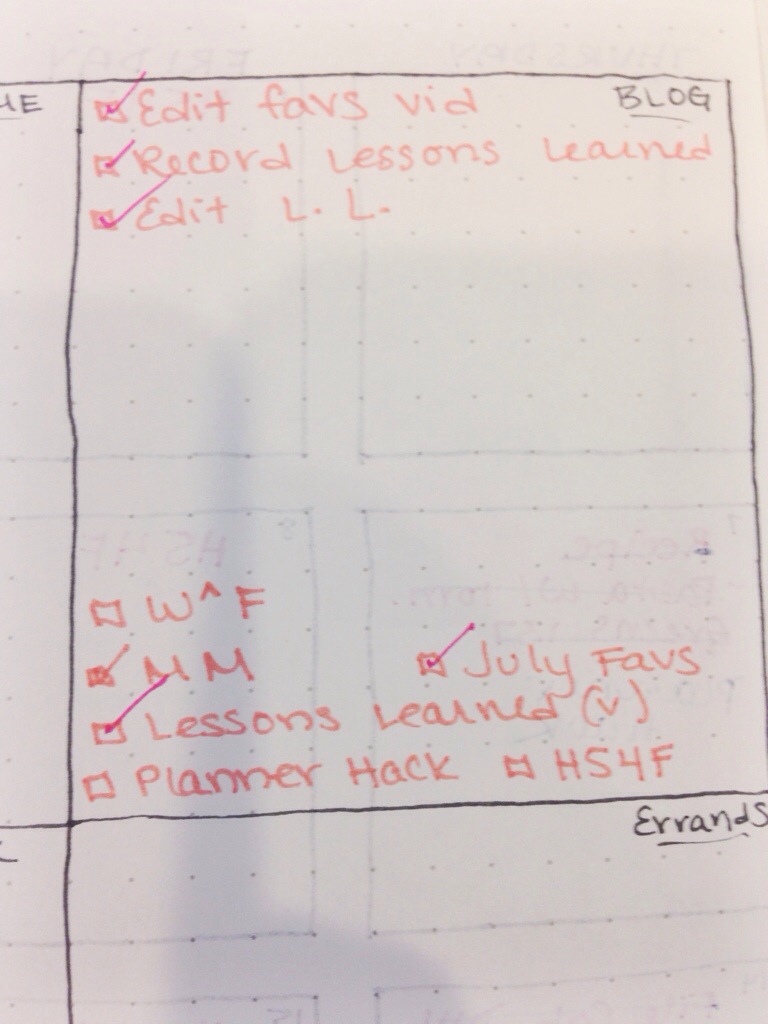 BLOG
Edit favs vid
Record Lessons Learned
Edit L. L.
W^F
MM
July Favs
Lessons Learned (v)
Planner Hack
HS4F
Errands